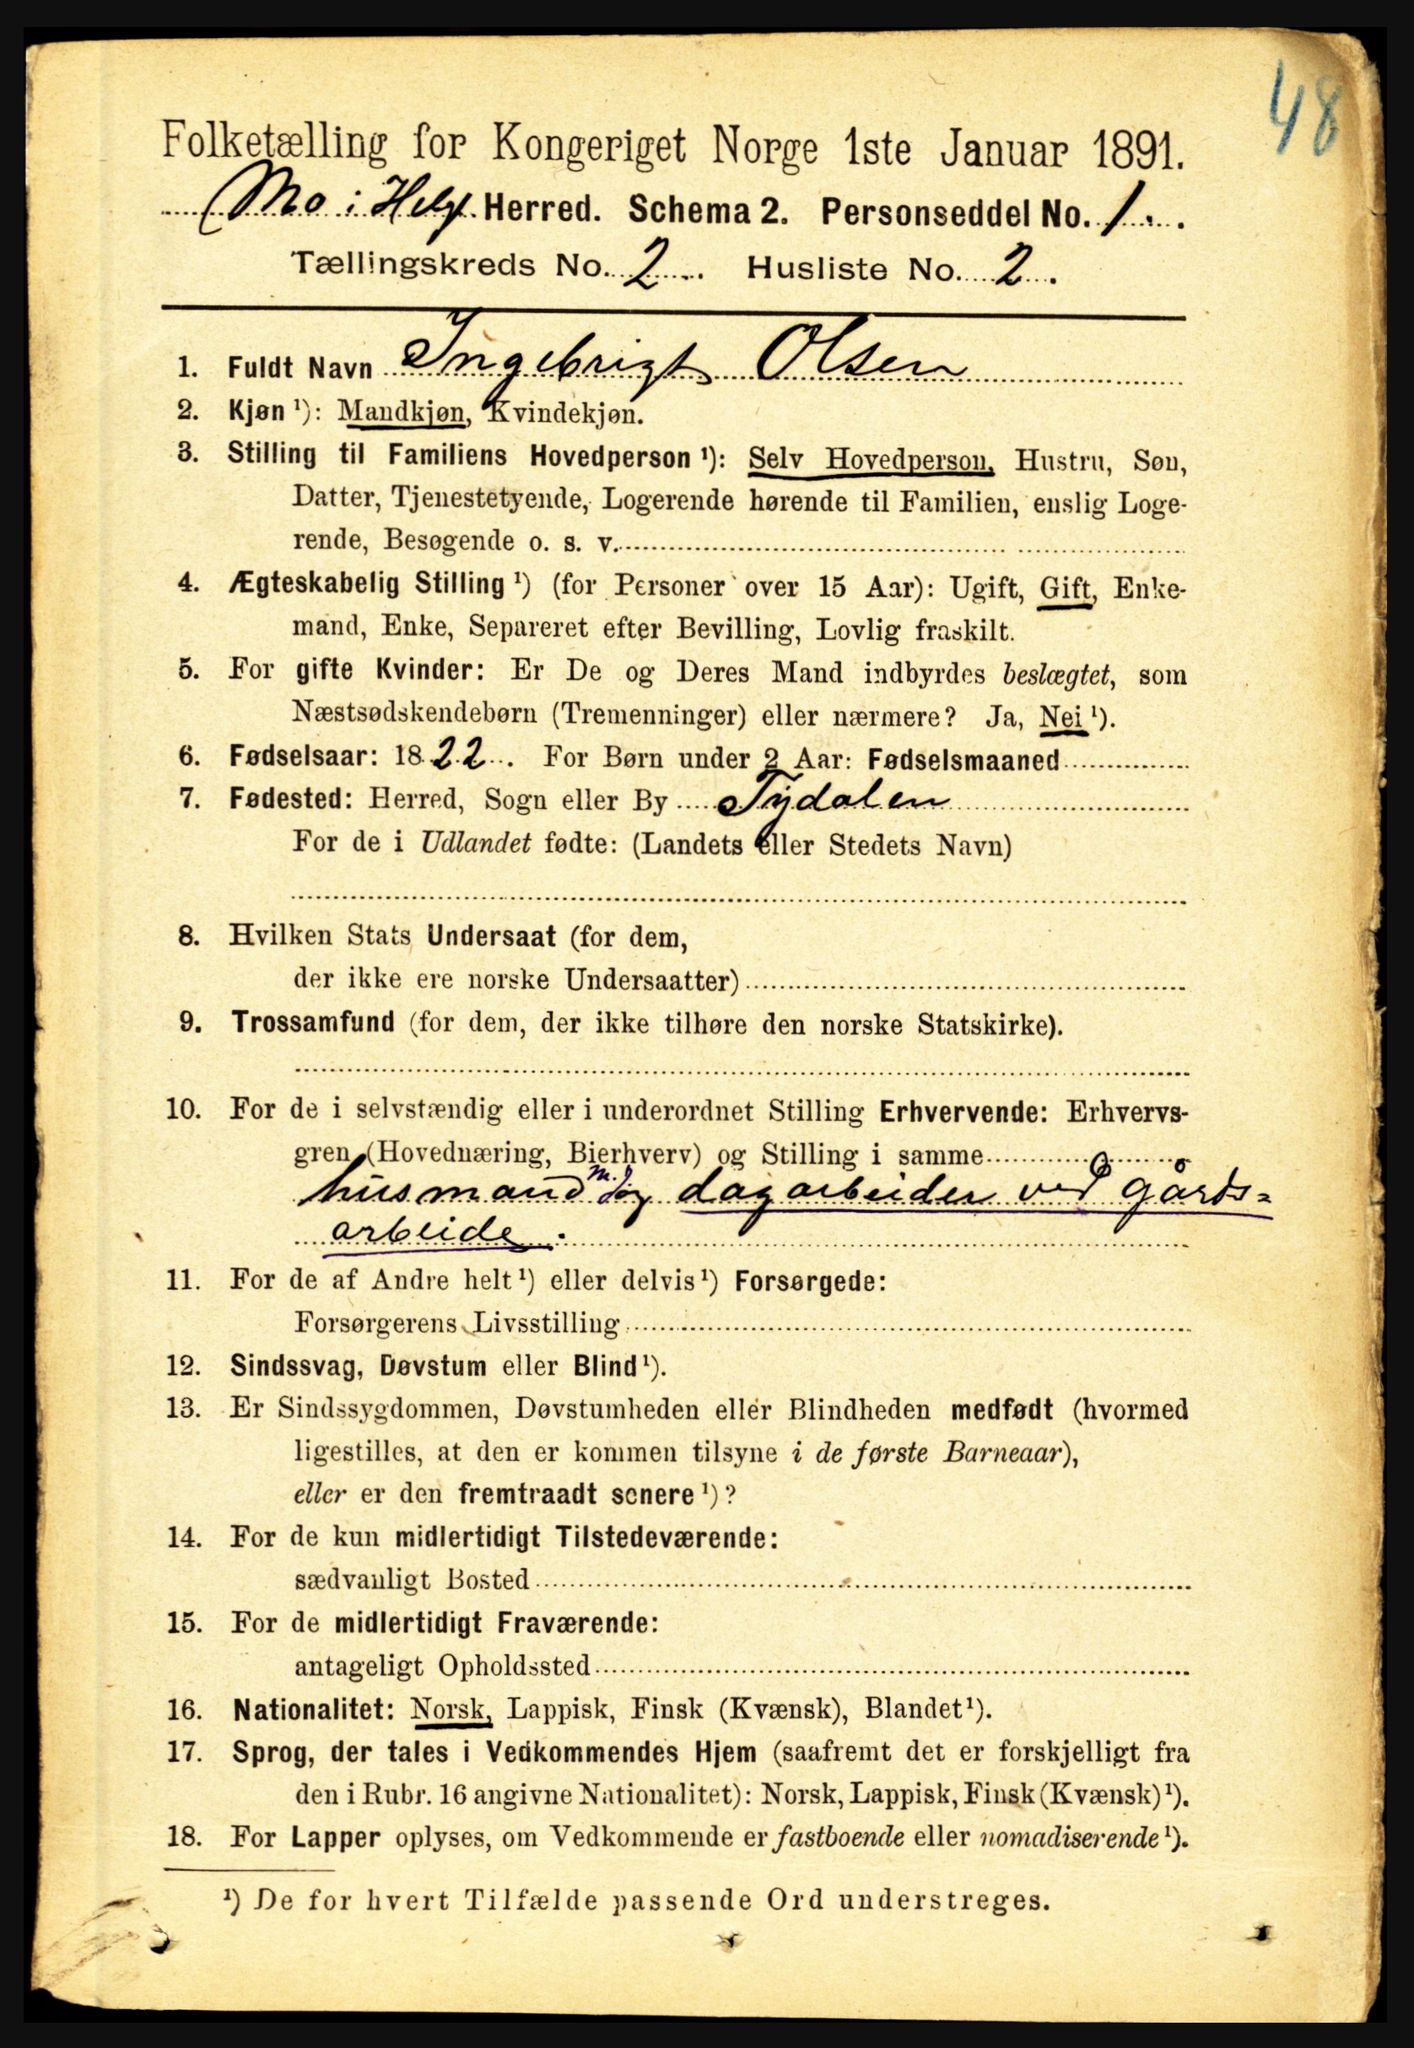 48
Folketælling for Kongeriget Norge 1ste Januar 1891.
Mo i Helg. Herred. Schema 2. Personseddel No. 1.
Tællingskreds No. 2. Husliste No. 2.
1. Fuldt Navn Ingebrigt Olsen
2. Kjøn ¹): Mandkjøn, Kvindekjøn.
3. Stilling til Familiens Hovedperson ¹): Selv Hovedperson, Hustru, Søn,
Datter, Tjenestetyende, Logerende hørende til Familien, enslig Loge-
rende, Besøgende o. s. v.
4. Ægteskabelig Stilling ¹) (for Personer over 15 Aar): Ugift, Gift, Enke-
mand, Enke, Separeret efter Bevilling, Lovlig fraskilt.
5. For gifte Kvinder: Er De og Deres Mand indbyrdes beslægtet, som
Næstsødskendebørn (Tremenninger) eller nærmere? Ja, Nei ¹).
6. Fødselsaar: 1822. For Børn under 2 Aar: Fødselsmaaned
7. Fødested: Herred, Sogn eller By Tydalen
For de i Udlandet fødte: (Landets eller Stedets Navn)
8. Hvilken Stats Undersaat (for dem,
der ikke ere norske Undersaatter)
9. Trossamfund (for dem, der ikke tilhøre den norske Statskirke).
10. For de i selvstændig eller i underordnet Stilling Erhvervende: Erhvervs-
gren (Hovednæring, Bierhverv) og Stilling i samme
husmand m. J og dagarbeider ved gårds-
arbeide.
11. For de af Andre helt ¹) eller delvis ¹) Forsørgede:
Forsørgerens Livsstilling
12. Sindssvag, Døvstum eller Blind ¹).
13. Er Sindssygdommen, Døvstumheden eller Blindheden medfødt (hvormed
ligestilles, at den er kommen tilsyne i de første Barneaar),
eller er den fremtraadt senere ¹)?
14. For de kun midlertidigt Tilstedeværende:
sædvanligt Bosted
15. For de midlertidigt Fraværende:
antageligt Opholdssted
16. Nationalitet: Norsk, Lappisk, Finsk (Kvænsk), Blandet ¹).
17. Sprog, der tales i Vedkommendes Hjem (saafremt det er forskjelligt fra
den i Rubr. 16 angivne Nationalitet): Norsk, Lappisk, Finsk (Kvænsk) ¹).
18. For Lapper oplyses, om Vedkommende er fastboende eller nomadiserende ¹).
¹) De for hvert Tilfælde passende Ord understreges.